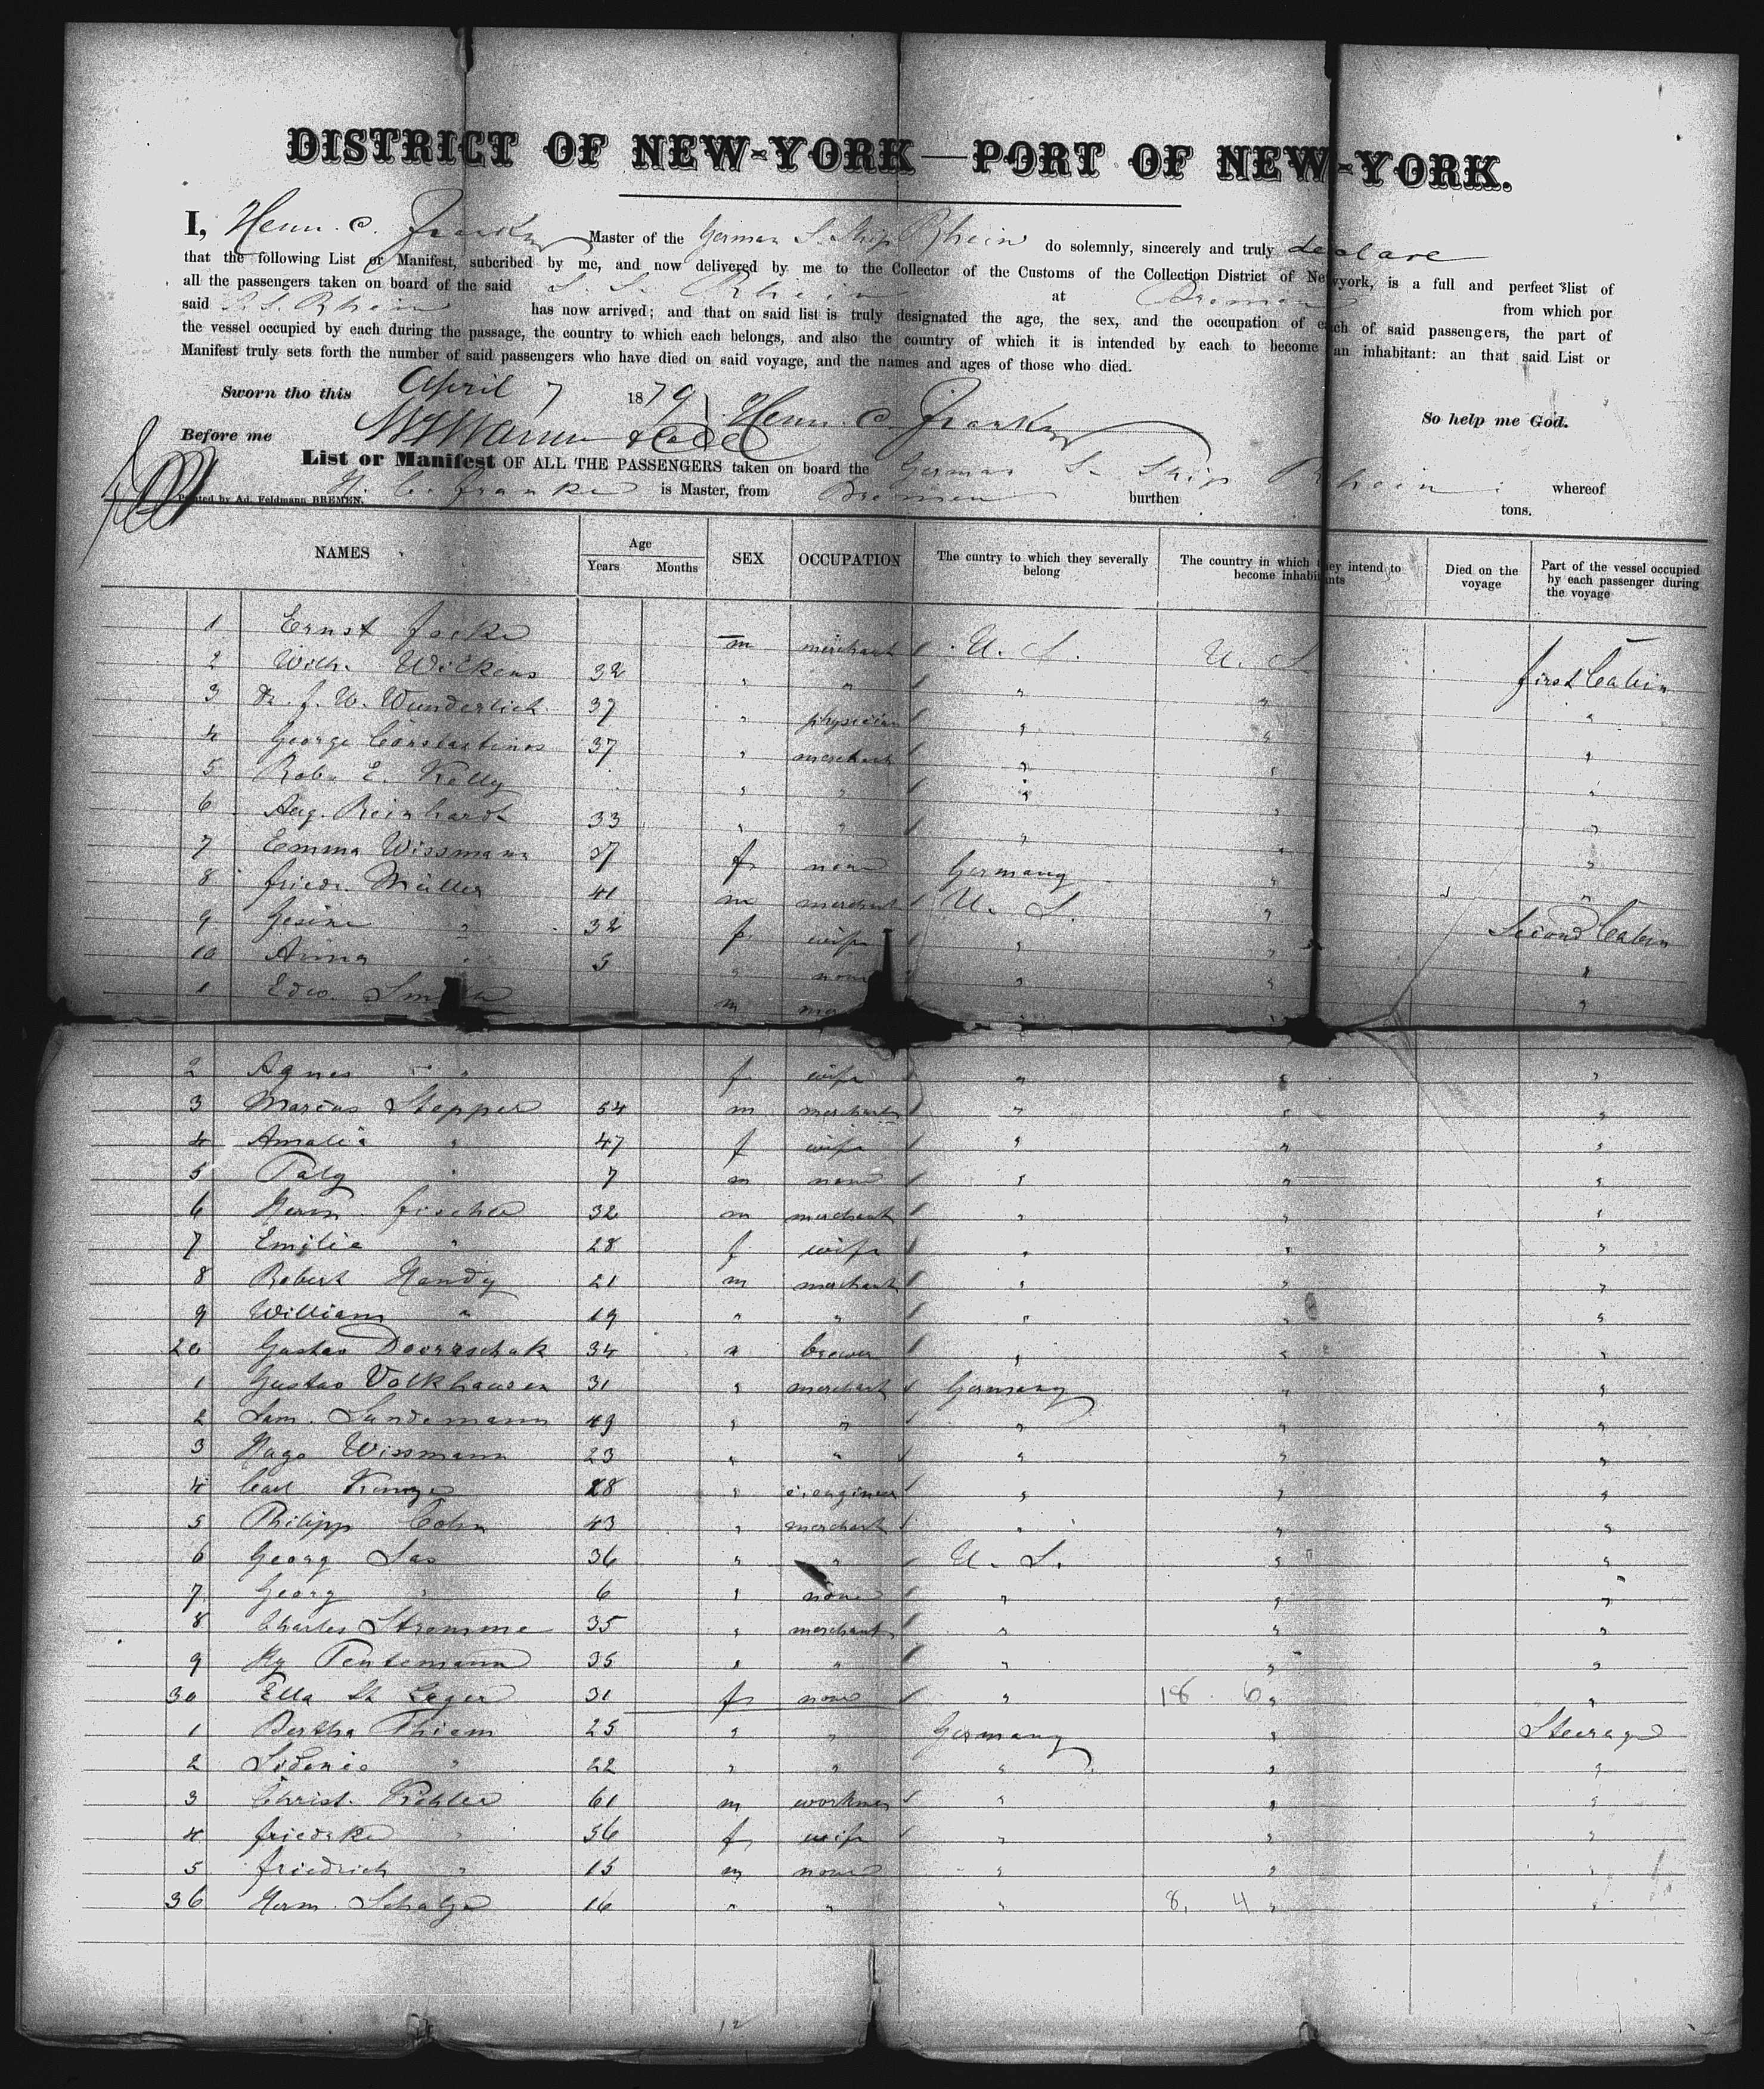 DISTRICT OF NEW-YORK—PORT OF NEW-YORK.
I, Herm. C. Franke Master of the German S. Ship Rhein do solemnly, sincerely and truly declare
that the following List or Manifest, subcribed by me, and now delivered by me to the Collector of the Customs of the Collection District of Newyork, is a full and perfect list of
all the passengers taken on board of the said S. S. Rhein at Bremen from which por
said S. S. Rhein has now arrived; and that on said list is truly designated the age, the sex, and the occupation of each of said passengers, the part of
the vessel occupied by each during the passage, the country to which each belongs, and also the country of which it is intended by each to become an inhabitant: an that said List or
Manifest truly sets forth the number of said passengers who have died on said voyage, and the names and ages of those who died.
Sworn tho this April 7 1879 Herm. C. Franke So help me God.
Before me
List or Manifest OF ALL THE PASSENGERS taken on board the German S. Ship Rhein whereof
H. C. Franke is Master, from Bremen burthen tons.
Printed by Ad. Feldmann BREMEN.
NAMES Age Years Months SEX OCCUPATION The cuntry to which they severally belong The country in which they intend to become inhabitants Died on the voyage Part of the vessel occupied by each passenger during the voyage
1 Ernst Focke m merchant U. S. U. S. first Cabin
2 Wilh. Wilkens 32 " " " " "
3 Dr. J. W. Wunderlich 37 " physician " " "
4 George Constantinos 37 " merchant " " "
5 Rob. E. Kelly " " " " "
6 Aug. Reinhardt 33 " " " " "
7 Emma Wissmann 37 f none Germany " "
8 Friedr. Müller 41 m merchant U. S. " Second Cabin
9 Gesine " 32 f wife " " "
10 Anna " 5 " none " " "
1 Edw. m " "
2 Agnes " f wife " " "
3 Marcus Stepper 54 m merchant " " "
4 Amalia " 47 f wife " " "
5 " 7 m none " " "
6 Herm. Fischer 32 m merchant " " "
7 Emilie " 28 f wife " " "
8 Robert Handy 21 m merchant " " "
9 William " 19 " " " " "
20 Gustav Doerrschak 34 " brewer " " "
1 Gustav Volkhausen 31 " merchant Germany " "
2 Sam. Sundemann 49 " " " " "
3 Hugo Wissmann 23 " " " " "
4 Carl 28 " c. engineer " " "
5 Philipp Cohn 43 " merchant " " "
6 Georg 36 " " U. S. " "
7 Georg " 6 " none " " "
8 Charles Stremme 35 " merchant " " "
9 Hy Pentemann 35 " " " " "
30 Ella St Leger 31 f none " 18 6 " "
1 Bertha Thiem 25 " " Germany " Steerage
2 Sidonie " 22 " " " " "
3 Christ. Köhler 61 m workman " " "
4 Friedrke " 56 f wife " " "
5 Friedrich " 15 m none " " "
36 Herm. Schulze 16 " " " 8. 4 " "
12